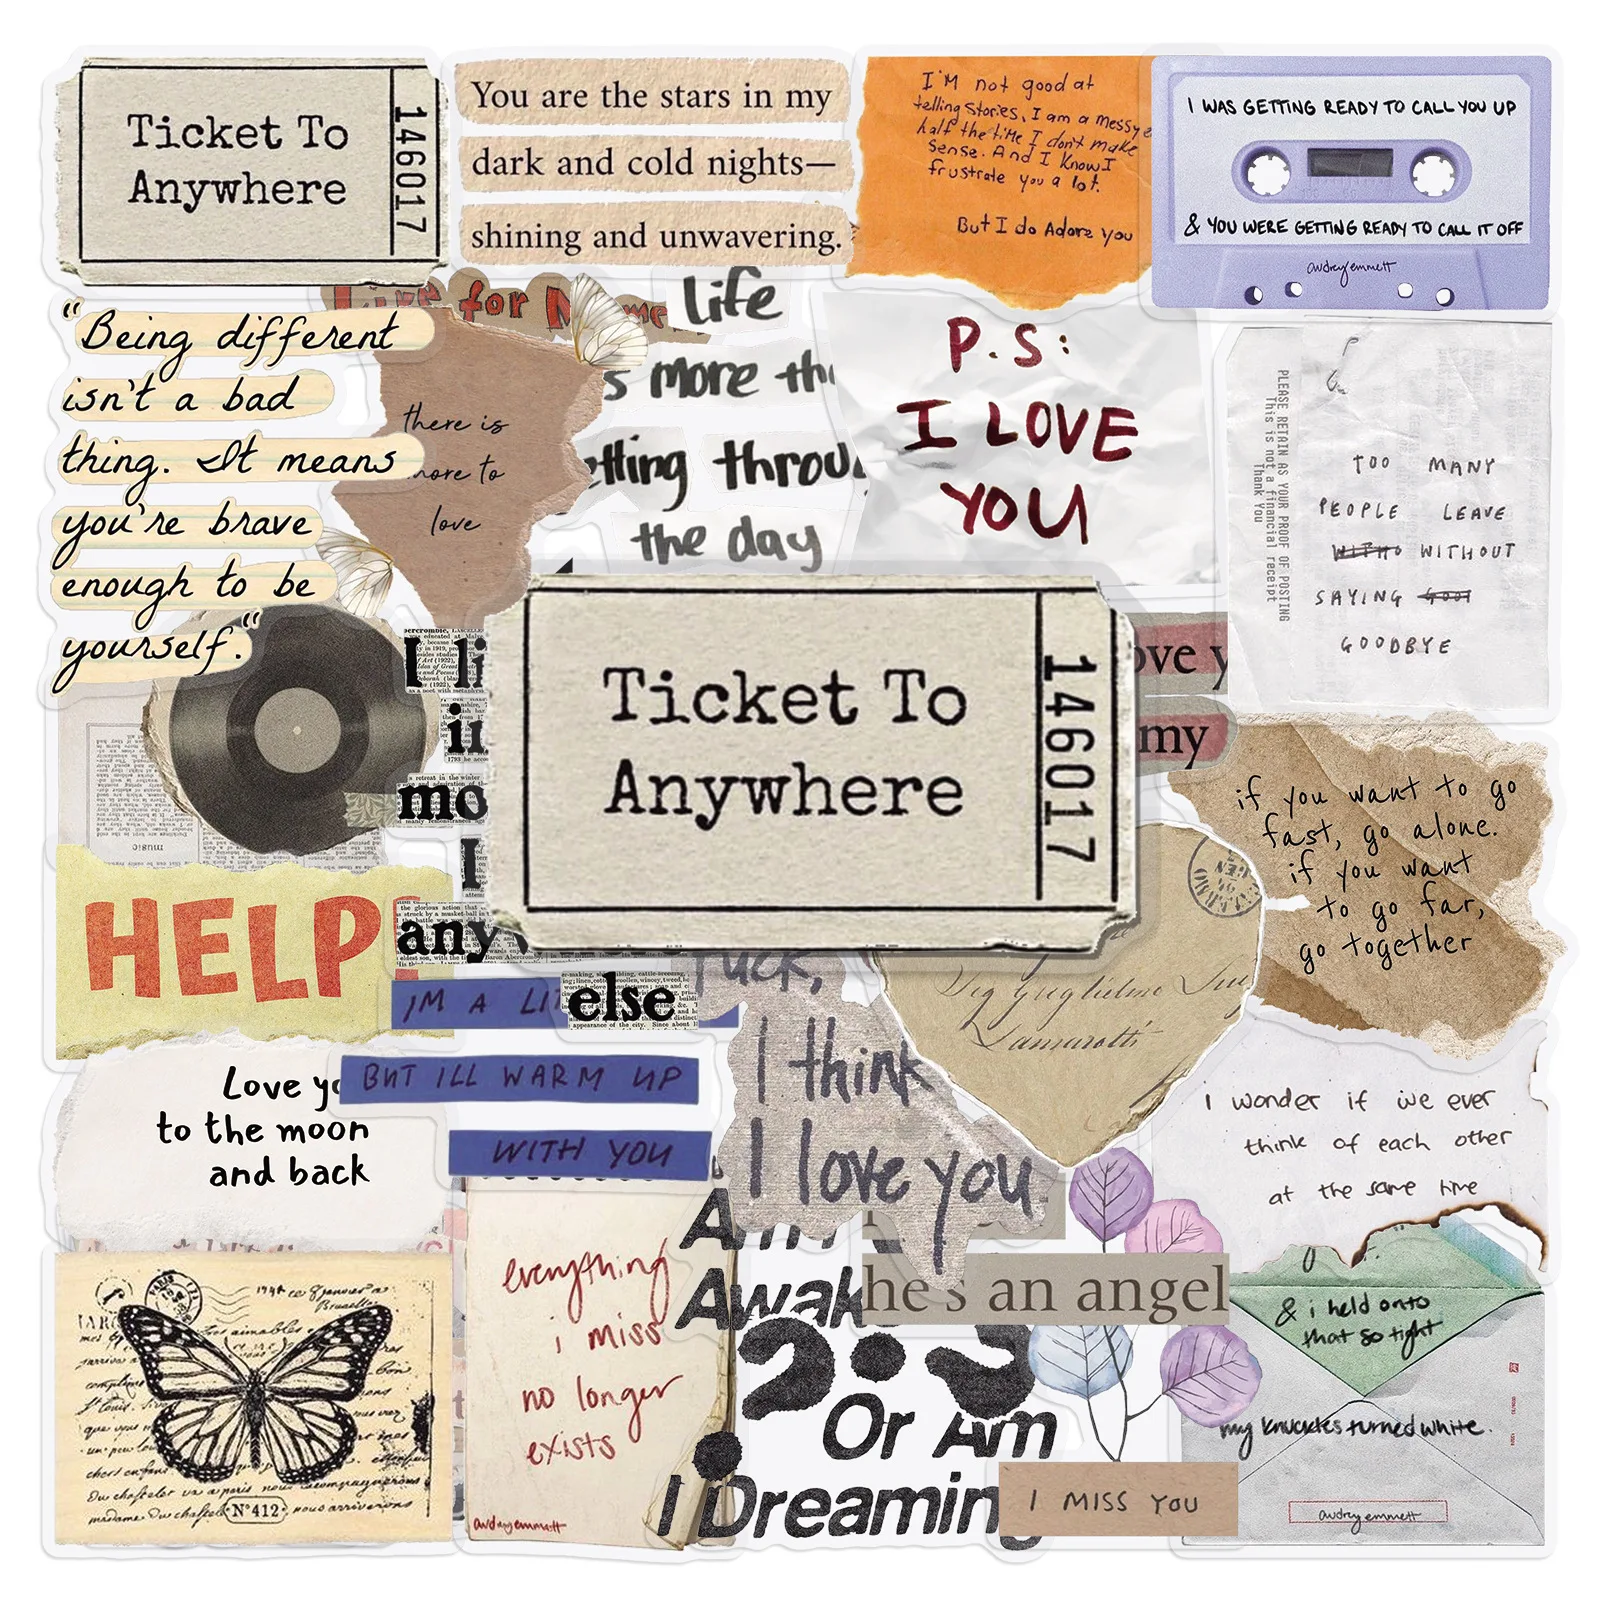 Ticket To
Anywhere
146017
You are the stars in my
dark and cold nights—
shining and unwavering.
I'M not good at
telling stories, I am a messy
half the time I don't make
sense. And I know I
frustrate you a lot.
But I do Adore you
I WAS GETTING READY TO CALL YOU UP
& YOU WERE GETTING READY TO CALL IT OFF
audrey emmett
"Being different
isn't a bad
thing. It means
you're brave
enough to be
yourself."
Live for
there is
more to
love
life
more
through
the day
P.S:
I LOVE
YOU
PLEASE RETAIN AS YOUR PROOF OF POSTING
This is not a financial receipt
Thank You
TOO MANY
PEOPLE LEAVE
WITHO WITHOUT
SAYING GOOD
GOODBYE
Ticket To
Anywhere
146017
I li
mo
I
any
else
my
music
HELP!
if you want to go
fast, go alone.
if you want
to go far,
go together
I'M A
BUT ILL WARM UP
WITH YOU
Love yo
to the moon
and back
I think
I love you
I wonder if we ever
think of each other
at the same time
Am I
Awak
Or Am
I Dreaming
he's an angel
everything
i miss
no longer
exists
audrey emmett
& i held onto
that so tight
my knuckles turned white.
audrey emmett
I MISS YOU
PARIS
Bruxelles
Nº412